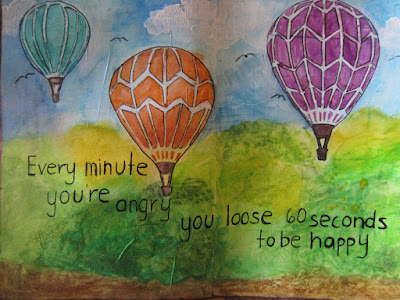 Every minute
you're angry
you loose 60 seconds
to be happy